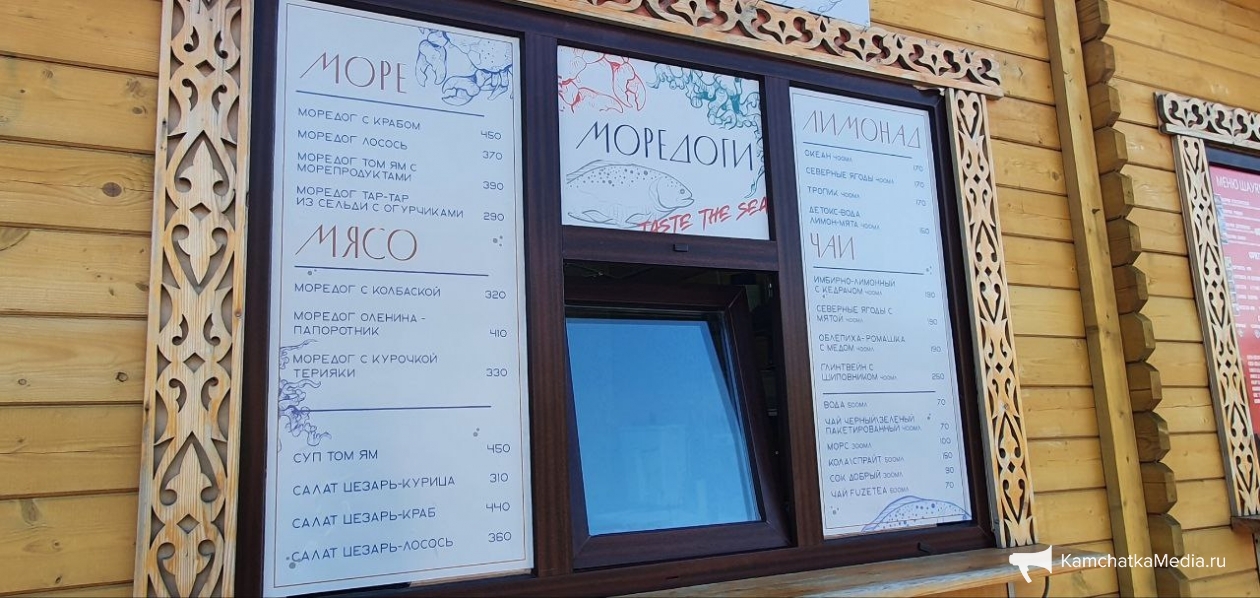 МОРЕ
МОРЕДОГ С КРАБОМ 450
МОРЕДОГ ЛОСОСЬ 370
МОРЕДОГ ТОМ ЯМ С
МОРЕПРОДУКТАМИ 390
МОРЕДОГ ТАР-ТАР
ИЗ СЕЛЬДИ С ОГУРЧИКАМИ 290
МЯСО
МОРЕДОГ С КОЛБАСКОЙ 320
МОРЕДОГ ОЛЕНИНА -
ПАПОРОТНИК 410
МОРЕДОГ С КУРОЧКОЙ
ТЕРИЯКИ 330
СУП ТОМ ЯМ 450
САЛАТ ЦЕЗАРЬ-КУРИЦА 310
САЛАТ ЦЕЗАРЬ-КРАБ 440
САЛАТ ЦЕЗАРЬ-ЛОСОСЬ 360
МОРЕДОГИ
TASTE THE SEA
ЛИМОНАД
ОКЕАН 400МЛ 170
СЕВЕРНЫЕ ЯГОДЫ 400МЛ 170
ТРОПИК 400МЛ 170
ДЕТОКС-ВОДА
ЛИМОН-МЯТА 400МЛ 160
ЧАЙ
ИМБИРНО-ЛИМОННЫЙ
С КЕДРАЧОМ 400МЛ 190
СЕВЕРНЫЕ ЯГОДЫ С
МЯТОЙ 400МЛ 190
ОБЛЕПИХА-РОМАШКА
С МЕДОМ 400МЛ 190
ГЛИНТВЕЙН С
ШИПОВНИКОМ 400МЛ 250
ВОДА 500МЛ 70
ЧАЙ ЧЕРНЫЙ\ЗЕЛЕНЫЙ
ПАКЕТИРОВАННЫЙ 400МЛ 70
МОРС 300МЛ 100
КОЛА\СПРАЙТ 500МЛ 150
СОК ДОБРЫЙ 300МЛ 90
ЧАЙ FUZETEA 500МЛ 70
МЕНЮ ШАУР
KamchatkaMedia.ru